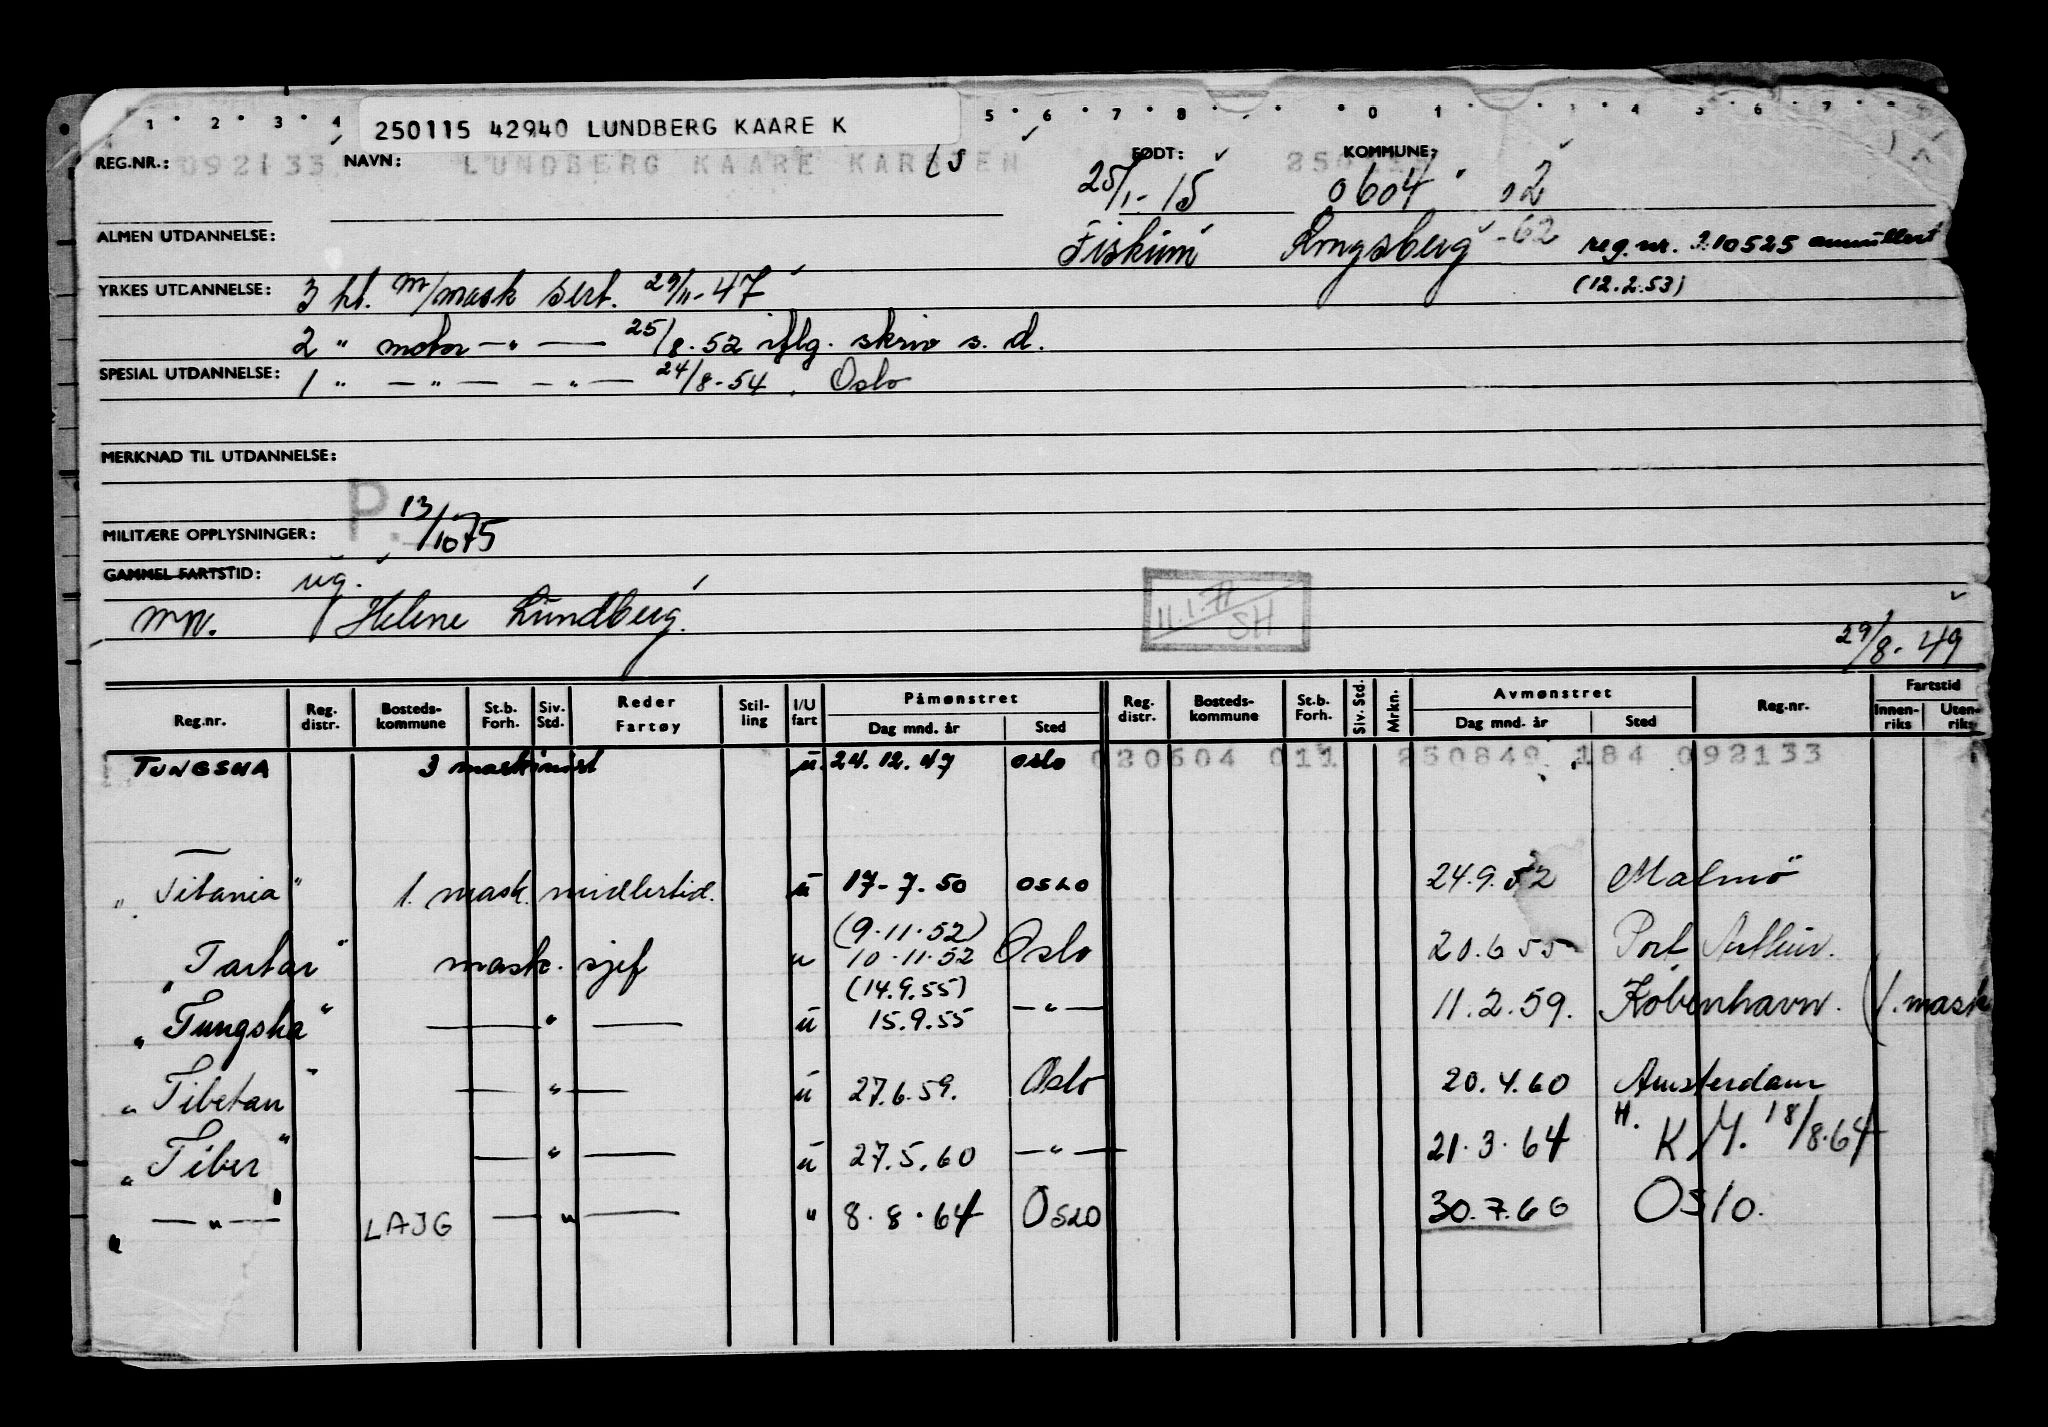 1 2 3 4 5 6 7 8 0 1 3 4 5 6 7
250115 42940 LUNDBERG KAARE K
REG.NR.: 092133 NAVN: LUNDBERG KAARE KARSTEN FØDT: KOMMUNE:
25/1-15 0604 02
ALMEN UTDANNELSE: Fiskum Kongsberg -62 reg.nr. 210525 annullert
YRKES UTDANNELSE: 3 kl. m/mask sert. 29/11-47 (12.2.53)
2 " motor — " — 25/8.52 iflg. skriv s. d.
SPESIAL UTDANNELSE: 1 " — " — — " — 24/8-54. Oslo
MERKNAD TIL UTDANNELSE:
P. 13/1075
MILITÆRE OPPLYSNINGER:
GAMMEL FARTSTID: ug.
m/v. Helene Lundberg.
11.1.71 SH
29/8-49
Reg.nr. Reg. distr. Bosteds-kommune St.b. Forh. Siv. Std. Reder Fartøy Stil-ling I/U fart Påmønstret Dag mnd. år Sted Reg. distr. Bosteds-kommune St.b. Forh. Siv. Std. Mrkn. Avmønstret Dag mnd. år Sted Reg.nr. Fartstid Innen-riks Uten-riks
TUNGSHA 3 maskinist u. 24.12.47 Oslo 020604 011 250849 184 092133
"Titania" 1. mask. midlertid. u 17-7.50 OSLO 24.9.52 Malmö
(9.11.52)
"Tartar" mask. sjef u 10.11.52 Oslo 20.6 55 Port Arthur.
(14.9.55)
"Tungsha" — " — u 15.9.55 — " — 11.2.59. København. (1. mask
"Tibetan" — " — u 27.6.59. Oslo 20.4.60 Amsterdam
"Tiber" — " — u 27.5.60 — " — 21.3.64 H. K/M. 18/8.64
— " — LAJG — " — " 8.8.64 OSLO 30.7.66 Oslo.